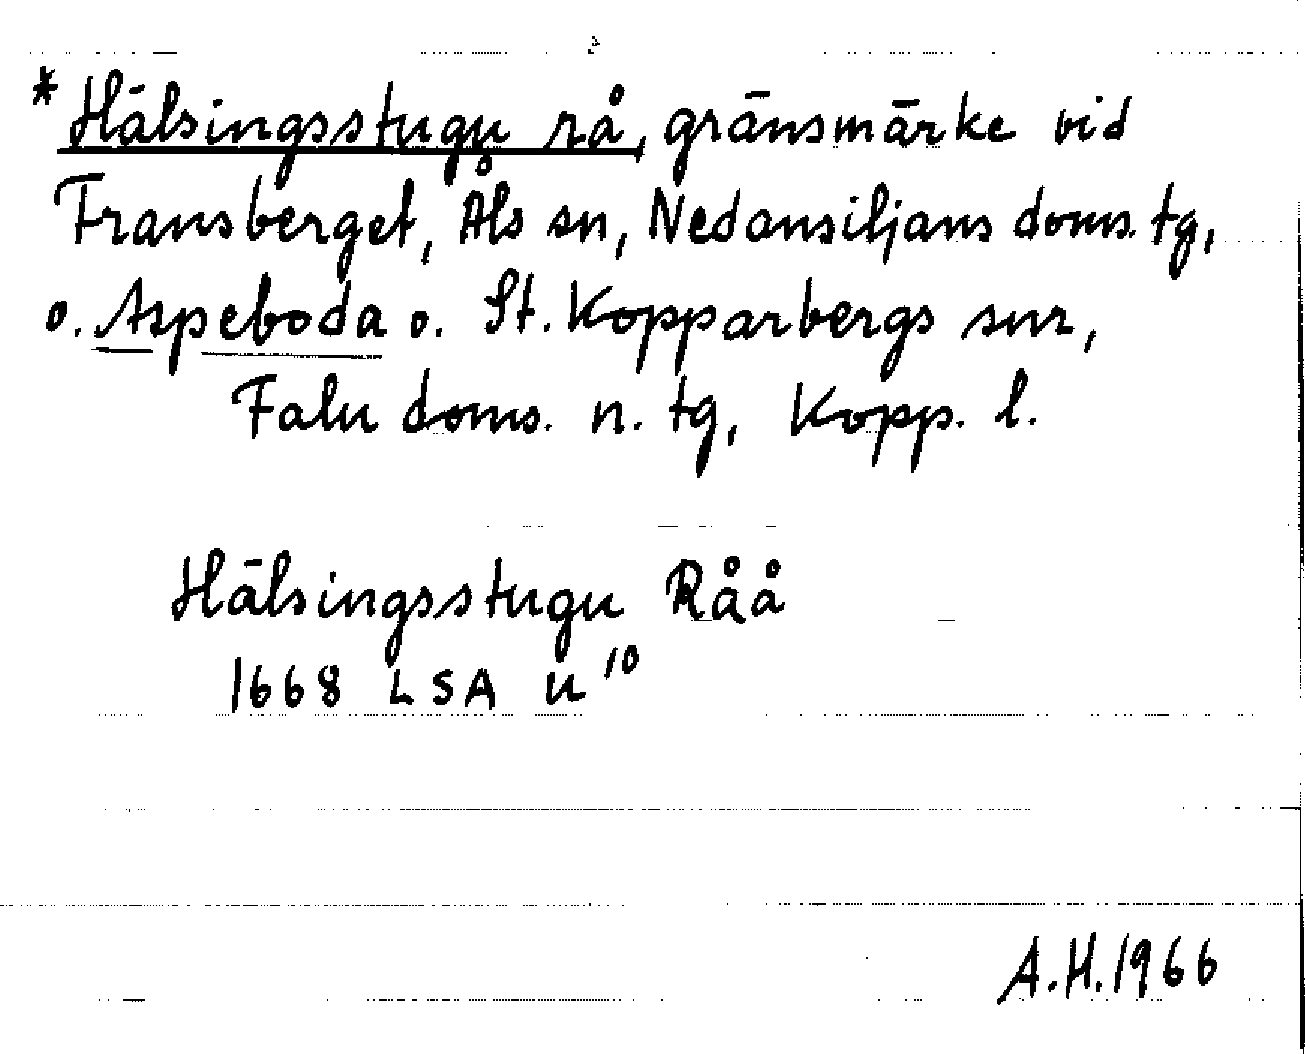 * Hälsingsstugu rå, gränsmärke vid
Fransberget, Åls sn, Nedansiljans doms. tg,
o. Aspeboda o. St. Kopparbergs snr,
Falu doms. n. tg, Kopp. l.
Hälsingsstugu Råå
1668 LSA U 10
A.H. 1966